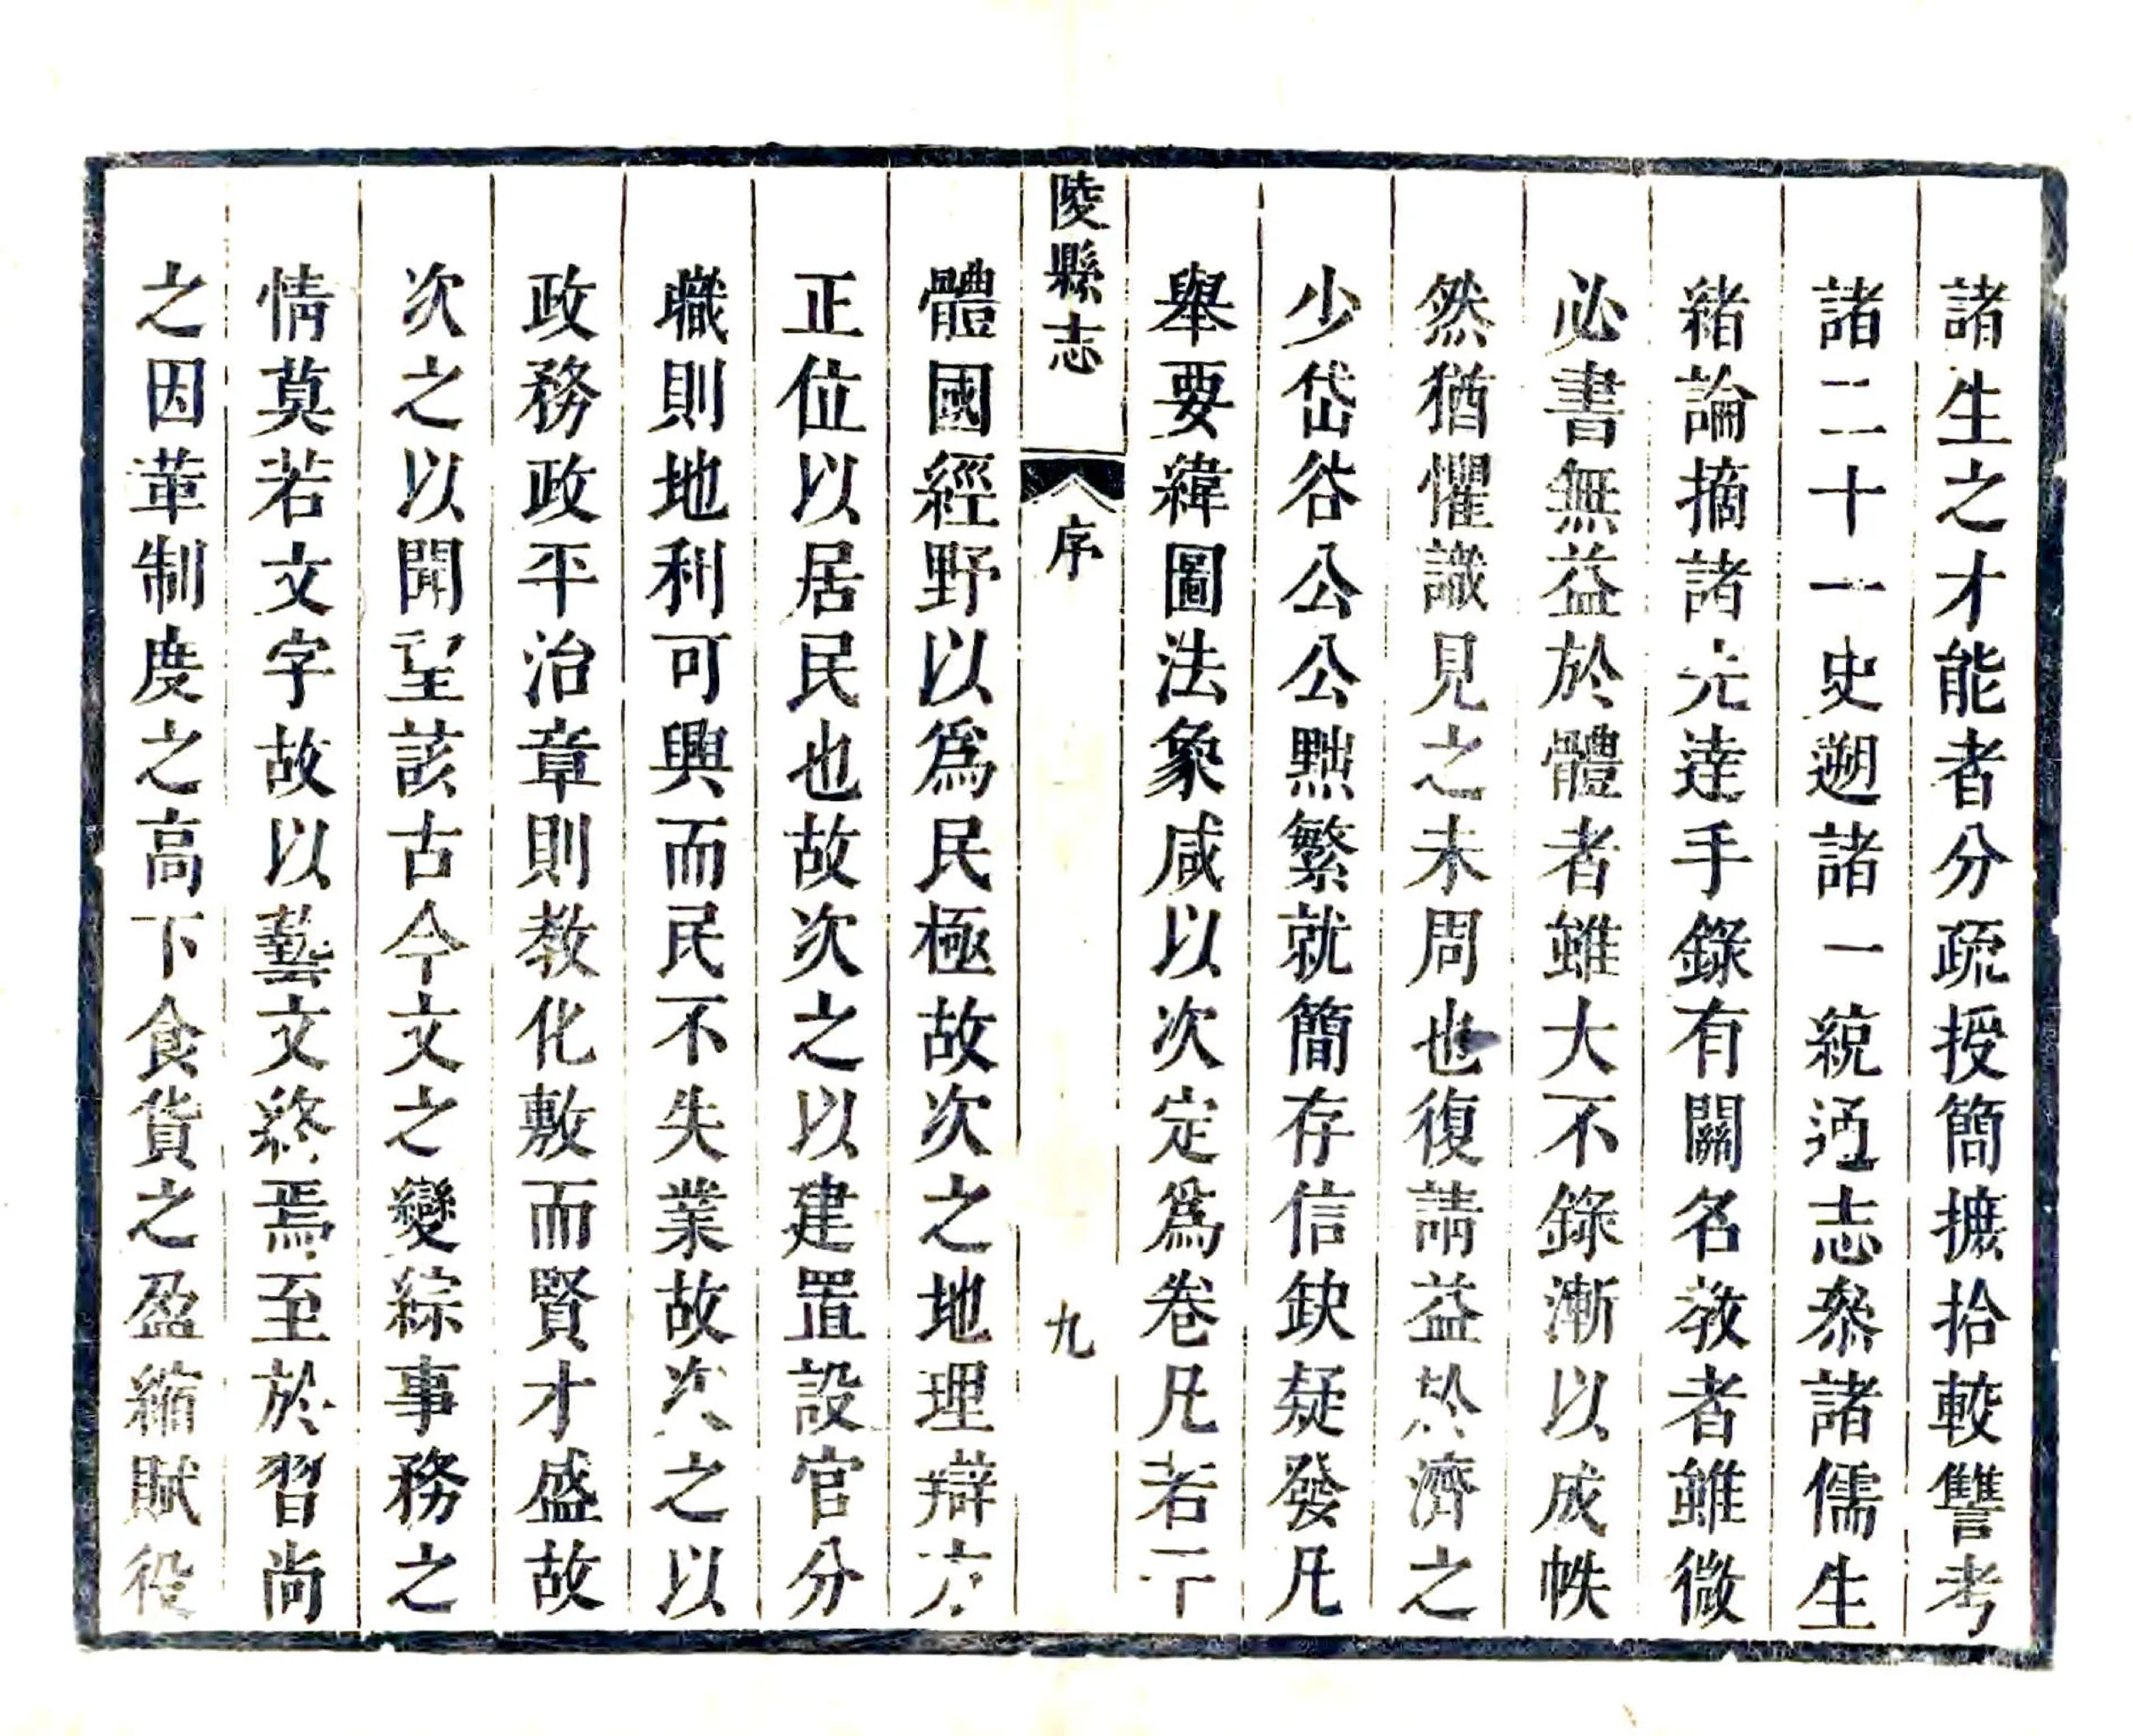 諸生之才能者分疏授簡摭拾較讐考
諸二十一史遡諸一統通志叅諸儒生
緒論摘諸先達手錄有關名教者雖微
必書無益於體者雖大不錄漸以成帙
然猶懼識見之未周也復請益於濟之
少岱谷公公黜繁就簡存信缺疑發凡
舉要緯圖法象咸以次定爲卷凡若干
陵縣志
序
九
體國經野以爲民極故次之地理辯方
正位以居民也故次之以建置設官分
職則地利可興而民不失業故次之以
政務政平治章則教化敷而賢才盛故
次之以聞望該古今文之變綜事務之
情莫若文字故以藝文終焉至於習尚
之因革制度之高下食貨之盈縮賦役